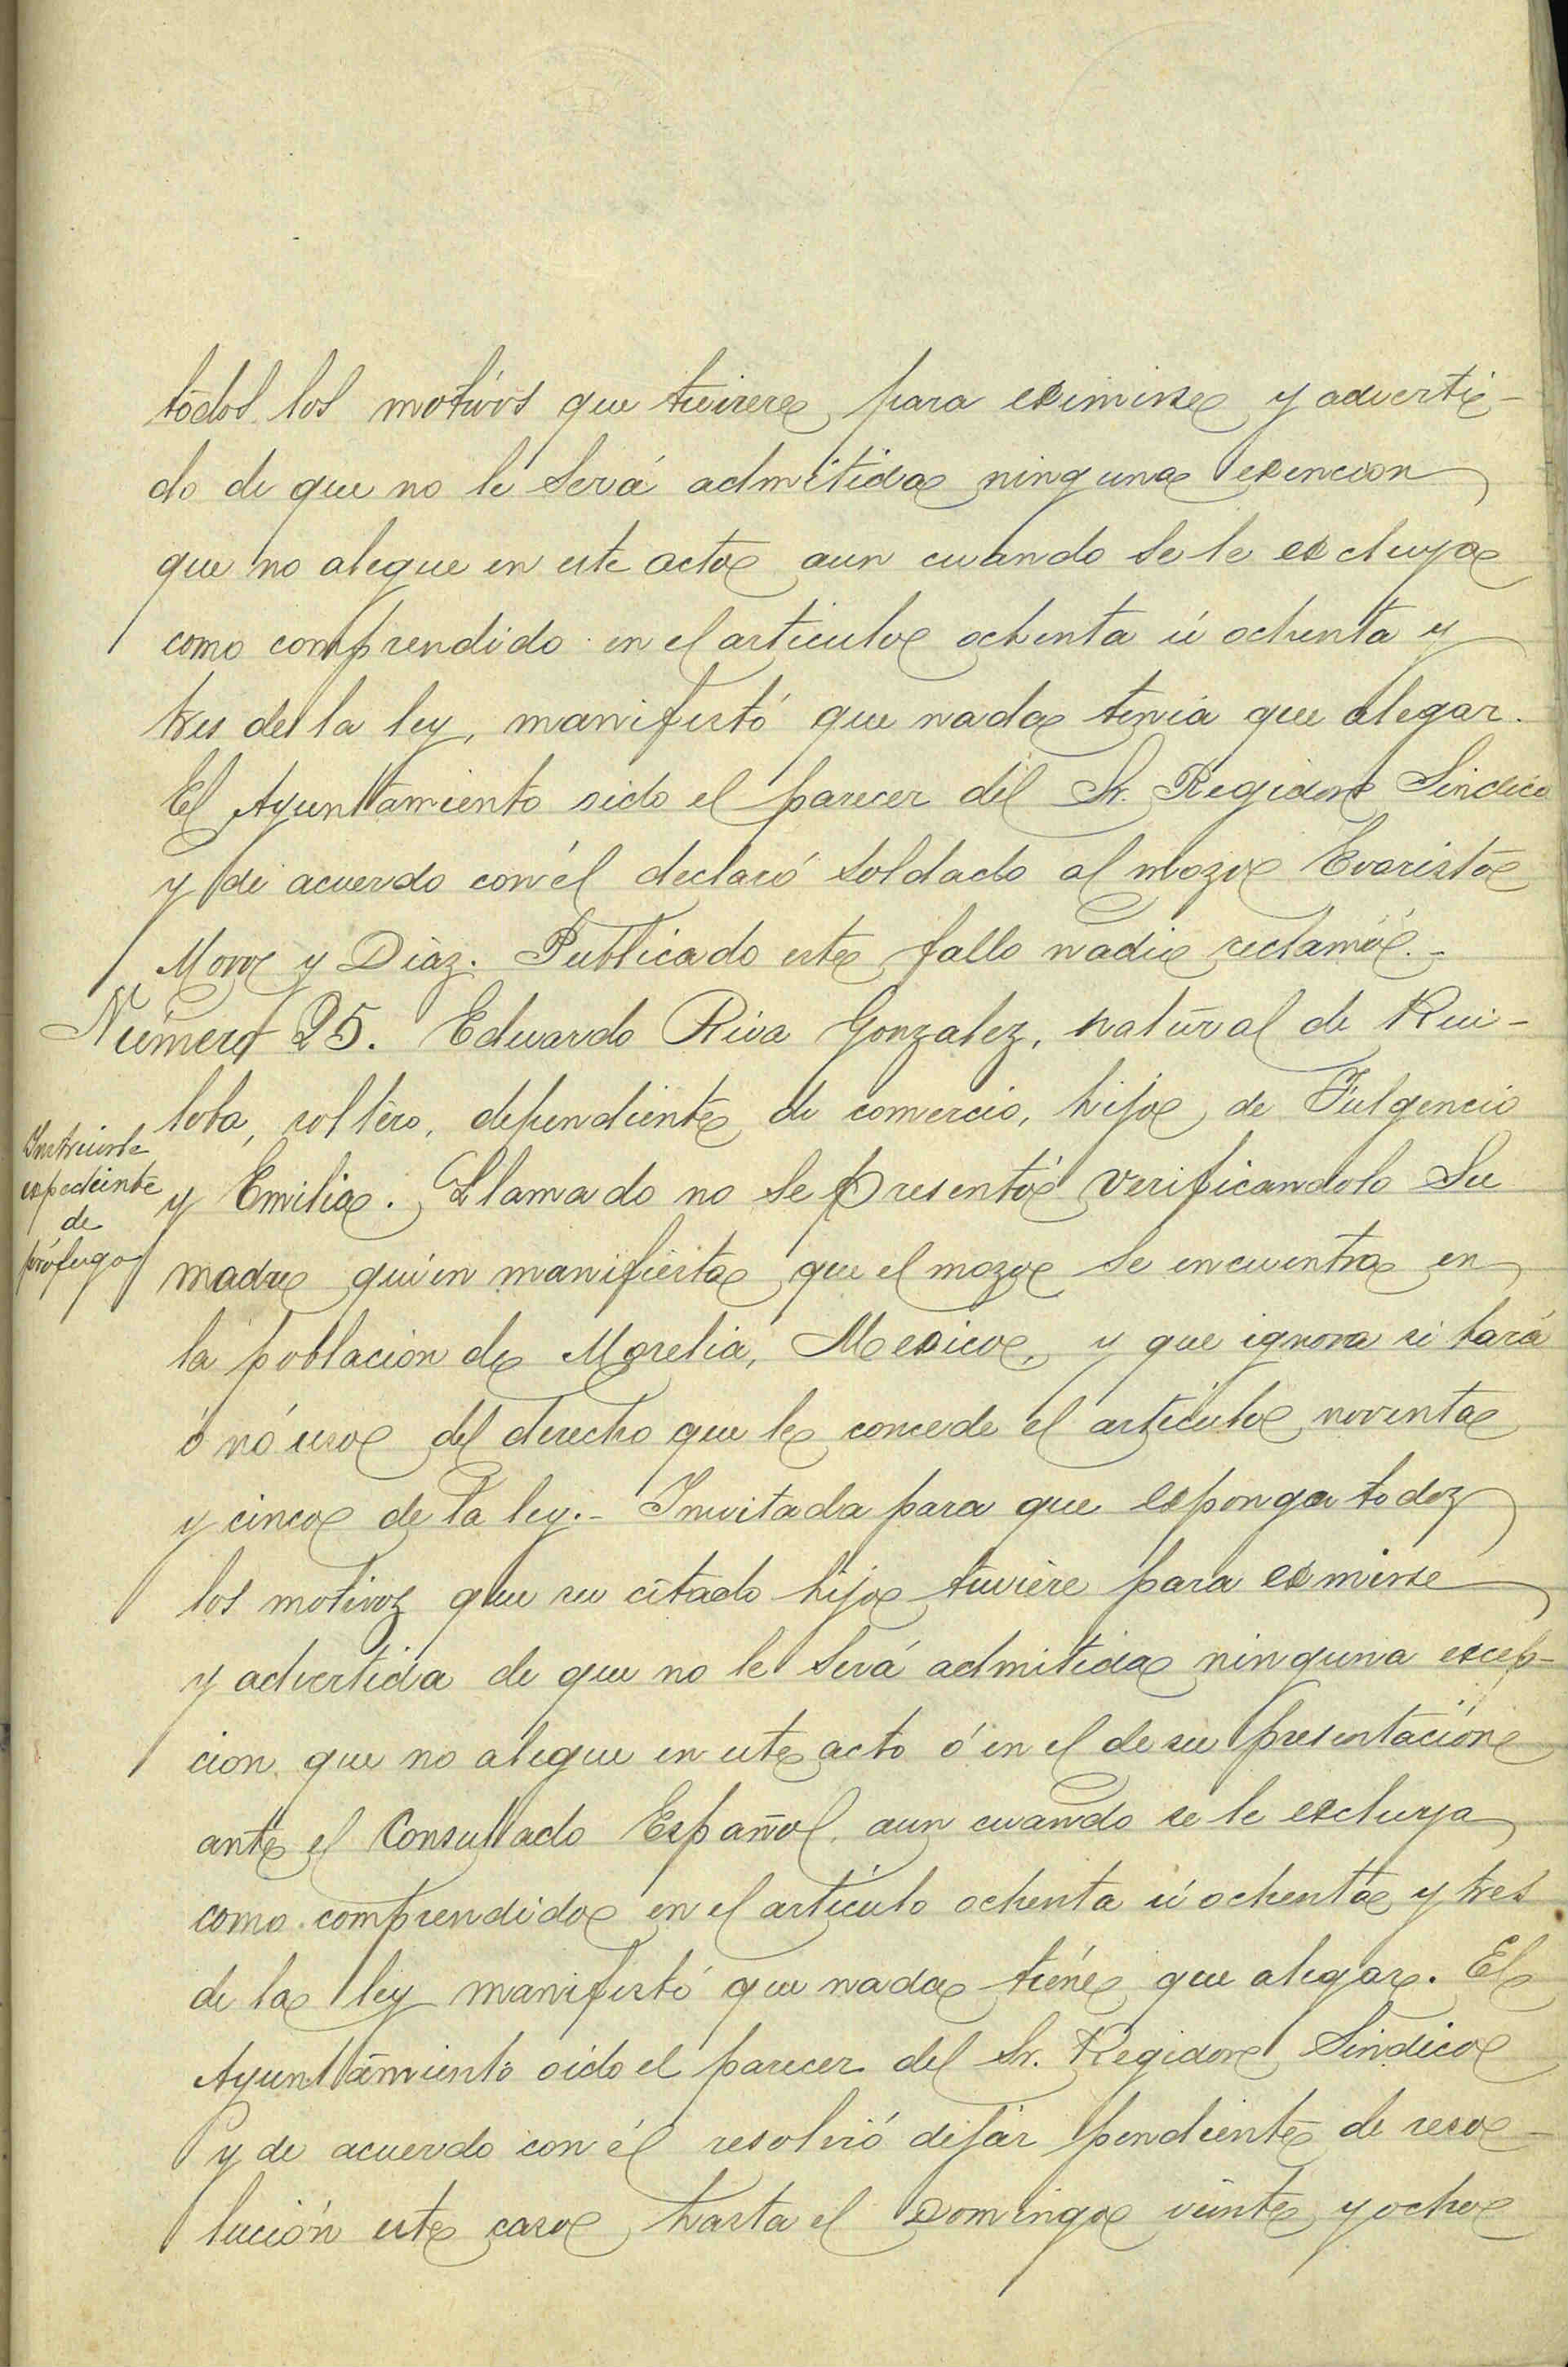 todos los motivos que tuviere para eximirse y adverti-
do de que no le será admitida ninguna exencion
que no alegue en este acto aun cuando se le excluya
como comprendido en el articulo ochenta ú ochenta y
tres de la ley, manifestó que nada tenia que alegar.
El Ayuntamiento oido el parecer del Sr. Regidor Sindico
y de acuerdo con él declaró soldado al mozo Evaristo
Moro y Diaz. Publicado este fallo nadie reclamó.-
Número 25. Eduardo Riva Gonzalez, natural de Rui-
loba, soltero, dependiente de comercio, hijo de Fulgencio
Instruirle
expediente
de
prófugo
y Emilia. Llamado no se presentó verificandolo su
madre quien manifiesta que el mozo se encuentra en
la población de Morelia, Mexico, y que ignora si hará
ó nó uso del derecho que le concede el artículo noventa
y cinco de la ley.- Invitada para que exponga todoz
los motivoz que su citado hijo tuviere para exmirse
y advertida de que no le será admitida ninguna excep-
cion que no alegue en este acto ó en el de su presentación
ante el Consulado Español, aun cuando se le excluya
como comprendido en el artículo ochenta ú ochenta y tres
de la ley manifestó que nada tiene que alegar. El
Ayuntamiento oido el parecer del Sr. Regidor Sindico
y de acuerdo con él resolvió dejar pendiente de reso-
lución este caso hasta el Domingo veinte y ocho